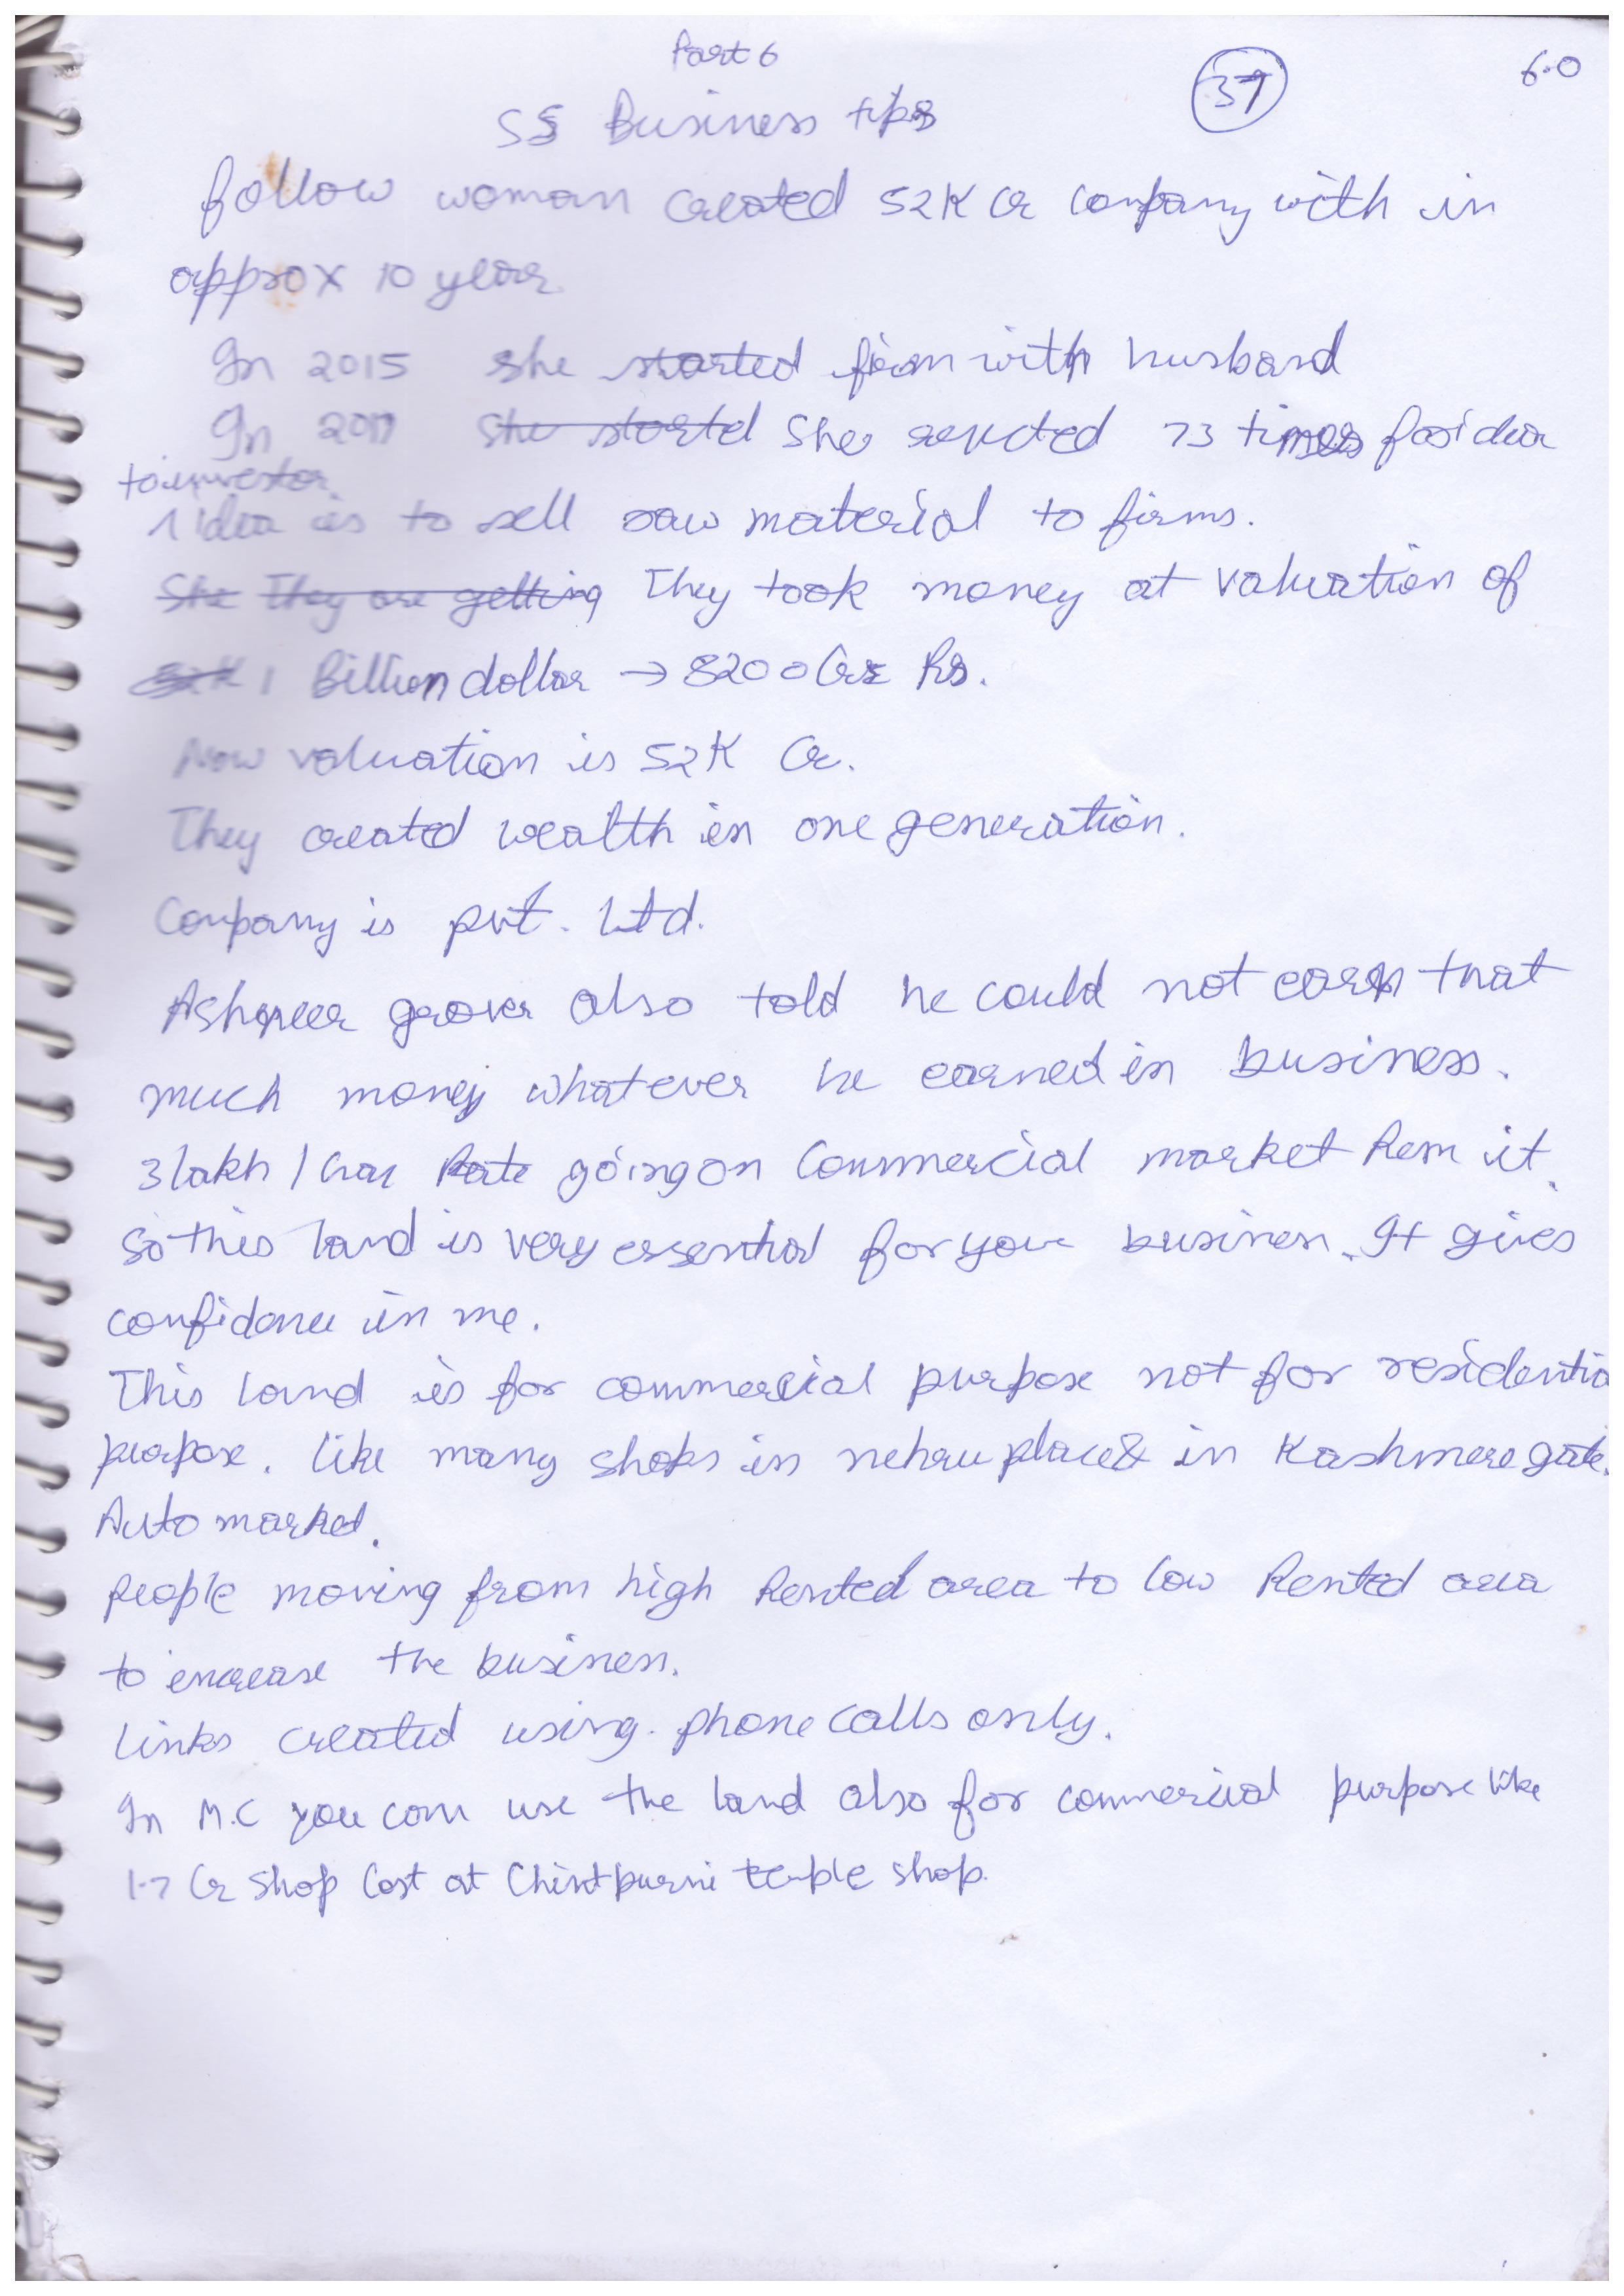 Part 6
37
6.0
SS Business tips
follow woman created 52K Cr company with in
approx 10 year.
In 2015 she started firm with husband
In 2017 She started She rejected 73 times for idea
to investor.
1 idea is to sell raw material to firms.
She They are getting They took money at valuation of
52K 1 Billion dollar → 8200 Crs Rs.
Now valuation is 52K Cr.
They created wealth in one generation.
Company is pvt. Ltd.
Ashneer grover also told he could not earn that
much money whatever he earned in business.
3 lakh / Rate going on Commercial market Rem it.
So this land is very essential for your business. It gives
confidence in me.
This land is for commercial purpose not for residentia
purpose. like many shops in nehru place & in Kashmere gate.
Auto market.
people moving from high Rented area to low Rented area
to increase the business.
links created using. phone calls only.
In M.C you can use the land also for commercial purpose like
1.7 Cr shop Cost at Chintpurni temple shop.